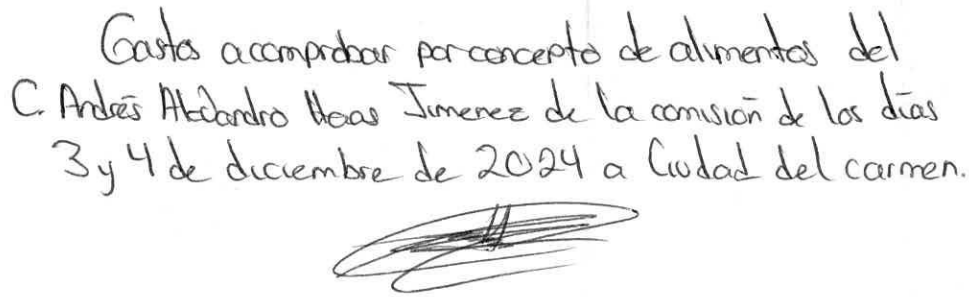 Gastos a comprobar por concepto de alimentos del
C. Andrés Alejandro Haas Jimenez de la comisión de los días
3 y 4 de diciembre de 2024 a Ciudad del carmen.